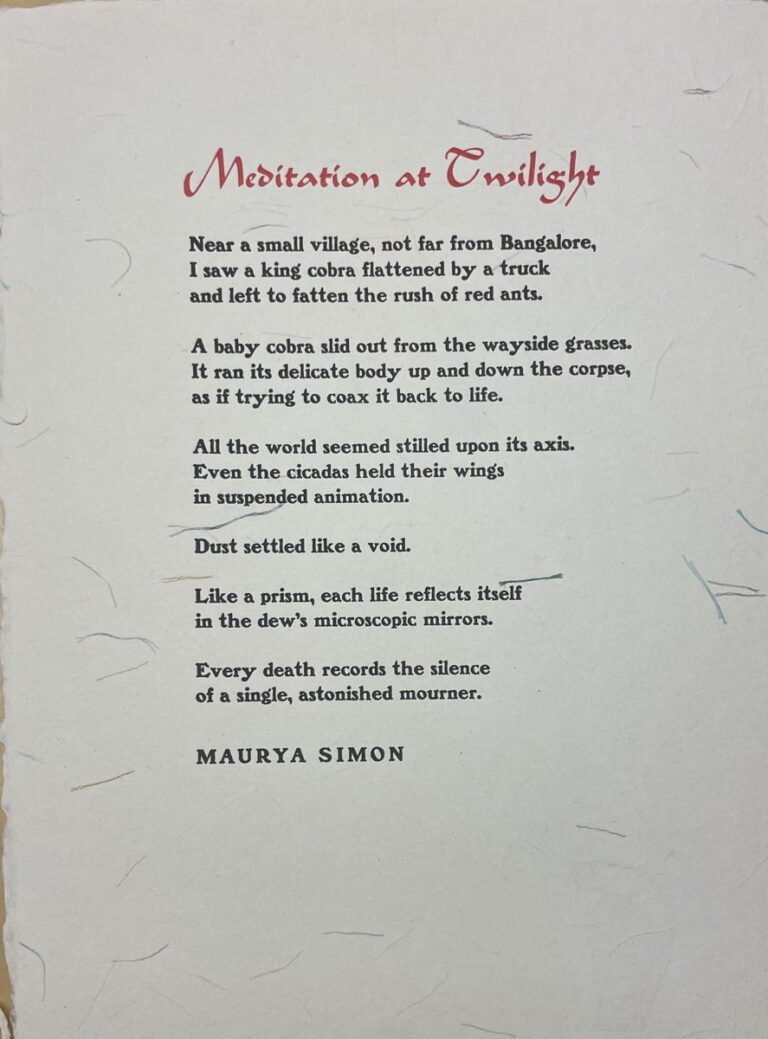 Meditation at Twilight
Near a small village, not far from Bangalore,
I saw a king cobra flattened by a truck
and left to fatten the rush of red ants.
A baby cobra slid out from the wayside grasses.
It ran its delicate body up and down the corpse,
as if trying to coax it back to life.
All the world seemed stilled upon its axis.
Even the cicadas held their wings
in suspended animation.
Dust settled like a void.
Like a prism, each life reflects itself
in the dew's microscopic mirrors.
Every death records the silence
of a single, astonished mourner.
MAURYA SIMON